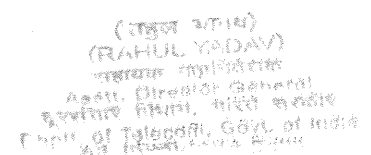 (राहुल यादव)
(RAHUL YADAV)
सहायक महानिदेशक
Asstt. Director General
दूरसंचार विभाग, भारत सरकार
Deptt. of Telecom, Govt. of India
नई दिल्ली/New Delhi